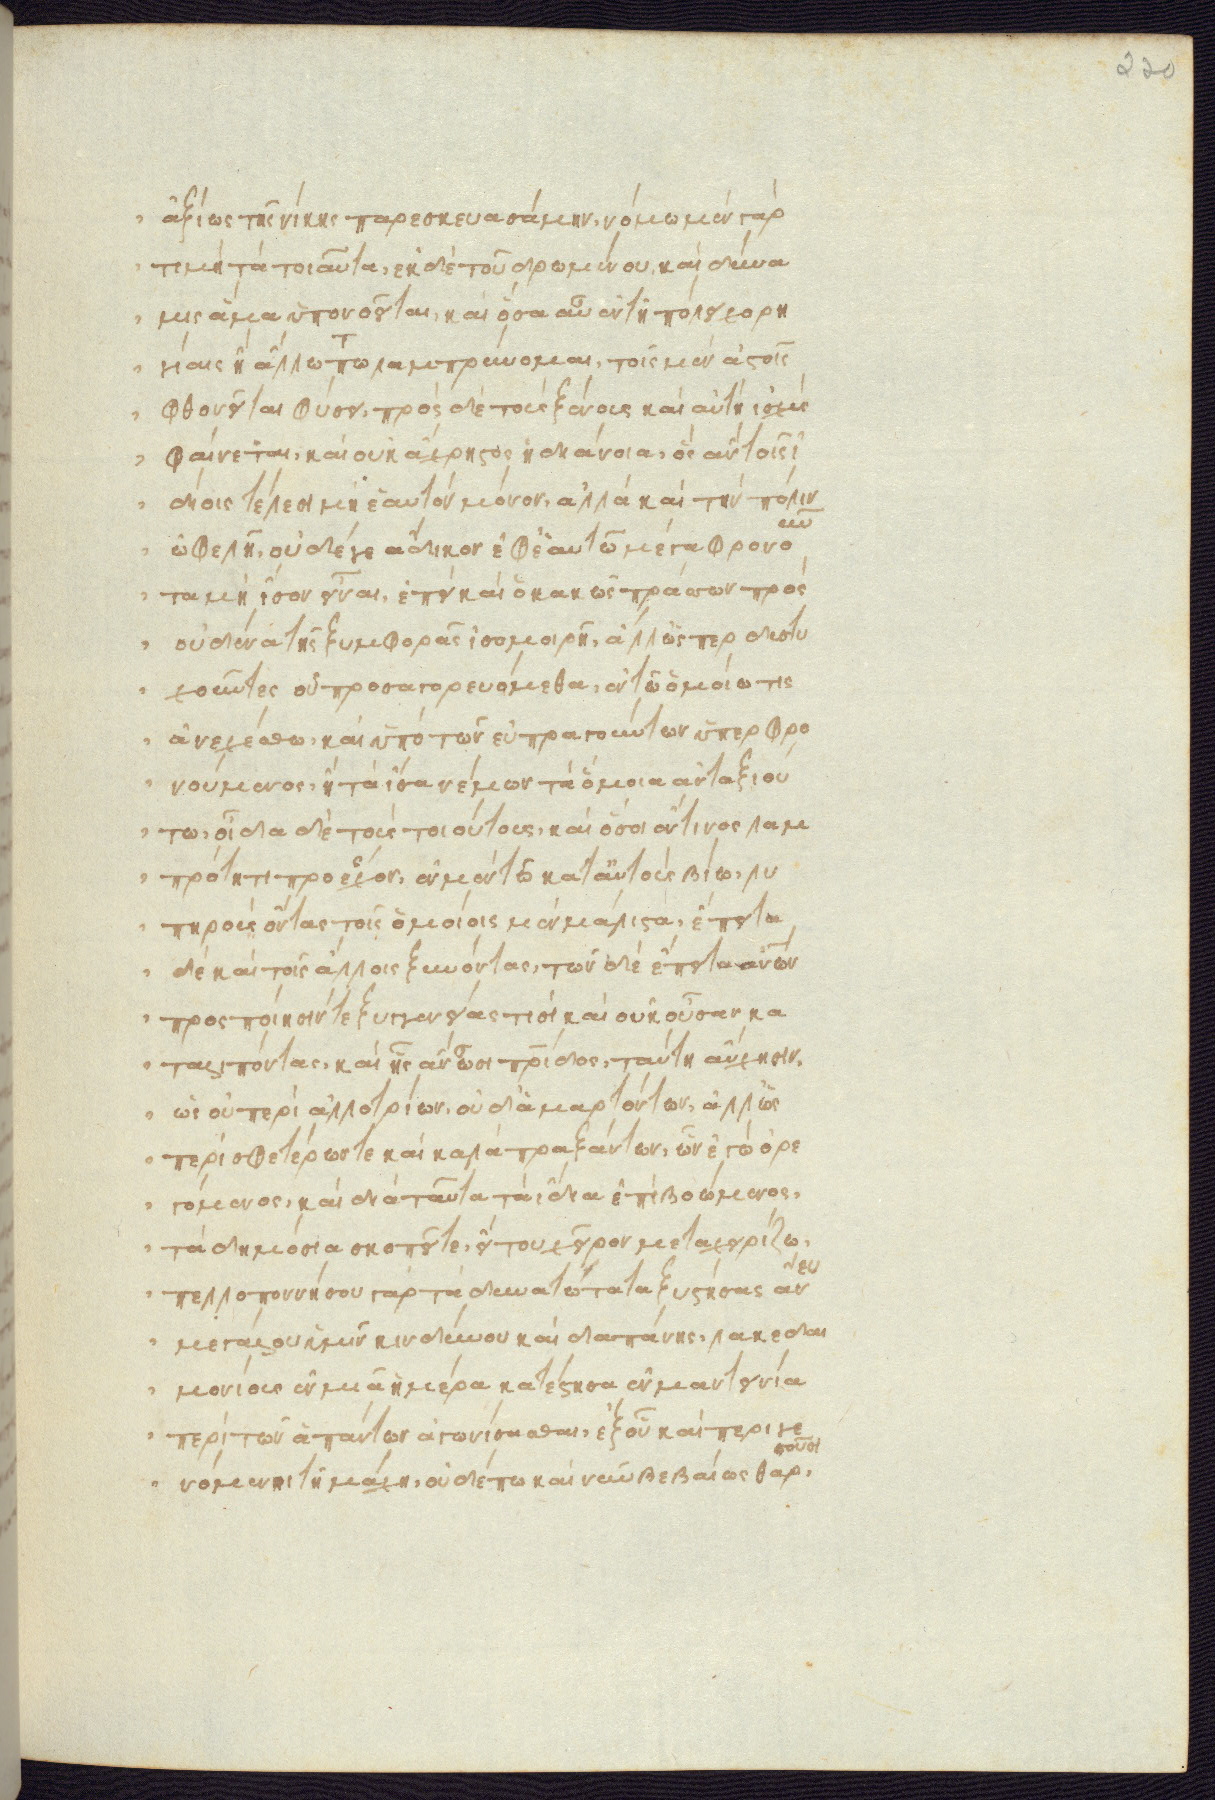 220
ἀξίως τῆς νίκης παρεσκευασάμην, νόμω μὲν γὰρ
τιμὴ τὰ τοιαῦτα, ἐκ δὲ τοῦ δρωμένου, καὶ δύνα
μις ἅμα ὑπονοεῖται, καὶ ὅσα αὖ ἐν τῆ πόλει χορη
γίαις ἢ ἄλλω τω λαμπρύνομαι, τοῖς μὲν ἀστοῖς
φθονεῖται φύσει, πρὸς δὲ τοὺς ξένους καὶ αὐτὴ ἰσχὺς
φαίνεται, καὶ οὐκ ἄχρηστος ἡ διάνοια, ὃς ἂν τοῖς ἰ
δίοις τέλεσι μὴ ἑαυτὸν μόνον, ἀλλὰ καὶ τὴν πόλιν
ὠφελῆ, οὐδέ γε ἄδικον ἐφ' ἑαυτῶ μέγα φρονοῦν
τα μὴ ἴσον εἶναι, ἐπεὶ καὶ ὁ κακῶς πράσσων πρὸς
οὐδένα τῆς ξυμφορᾶς ἰσομοιρεῖ, ἀλλ' ὥσπερ δυστυ
χοῦντες οὐ προσαγορευόμεθα, ἐν τῶ ὁμοίω τις
ἀνεχέσθω, καὶ ὑπὸ τῶν εὐπραγούντων ὑπερφρο
νούμενος, ἢ τὰ ἴσα νέμων τὰ ὅμοια ἀνταξιού
τω, οἶδα δὲ τοὺς τοιούτους, καὶ ὅσοι ἔν τινος λαμ
πρότητι προέσχον, ἐν μὲν τῶ κατ' αὐτοὺς βίω, λυ
πηροὺς ὄντας τοῖς ὁμοίοις μὲν μάλιστα, ἔπειτα
δὲ καὶ τοῖς ἄλλοις ξυνόντας, τῶν δὲ ἔπειτα ἀνων
προσποίησίν τε ξυγγενείας τισὶ καὶ οὐκ οὖσαν κα
ταλιπόντας, καὶ ἧς ἂν ὦσι πρίδος, ταύτη αὔχησιν,
ὡς οὐ περὶ ἀλλοτρίων, οὐδ' ἁμαρτόντων, ἀλλ' ὡς
περὶ σφετέρων τε καὶ καλὰ πραξάντων, ὧν ἐγὼ ὀρε
γόμενος, καὶ διὰ ταῦτα τὰ ἴδια ἐπιβοώμενος,
τὰ δημόσια σκοπεῖτε, εἴ του χεῖρον μεταχειρίζω,
πελλοποννήσου γὰρ τὰ δυνατώτατα ξυστήσας ἄνευ
μεγάλου ὑμῖν κινδύνου καὶ δαπάνης, λακεδαι
μονίους ἐν μιᾶ ἡμέρα κατέστησα ἐν μαντινεία
περὶ τῶν ἁπάντων ἀγωνίσασθαι, ἐξ οὗ καὶ περιγε
νόμενοι τῆ μάχη, οὐδέπω καὶ νῦν βεβαίως θαρσοῦσι